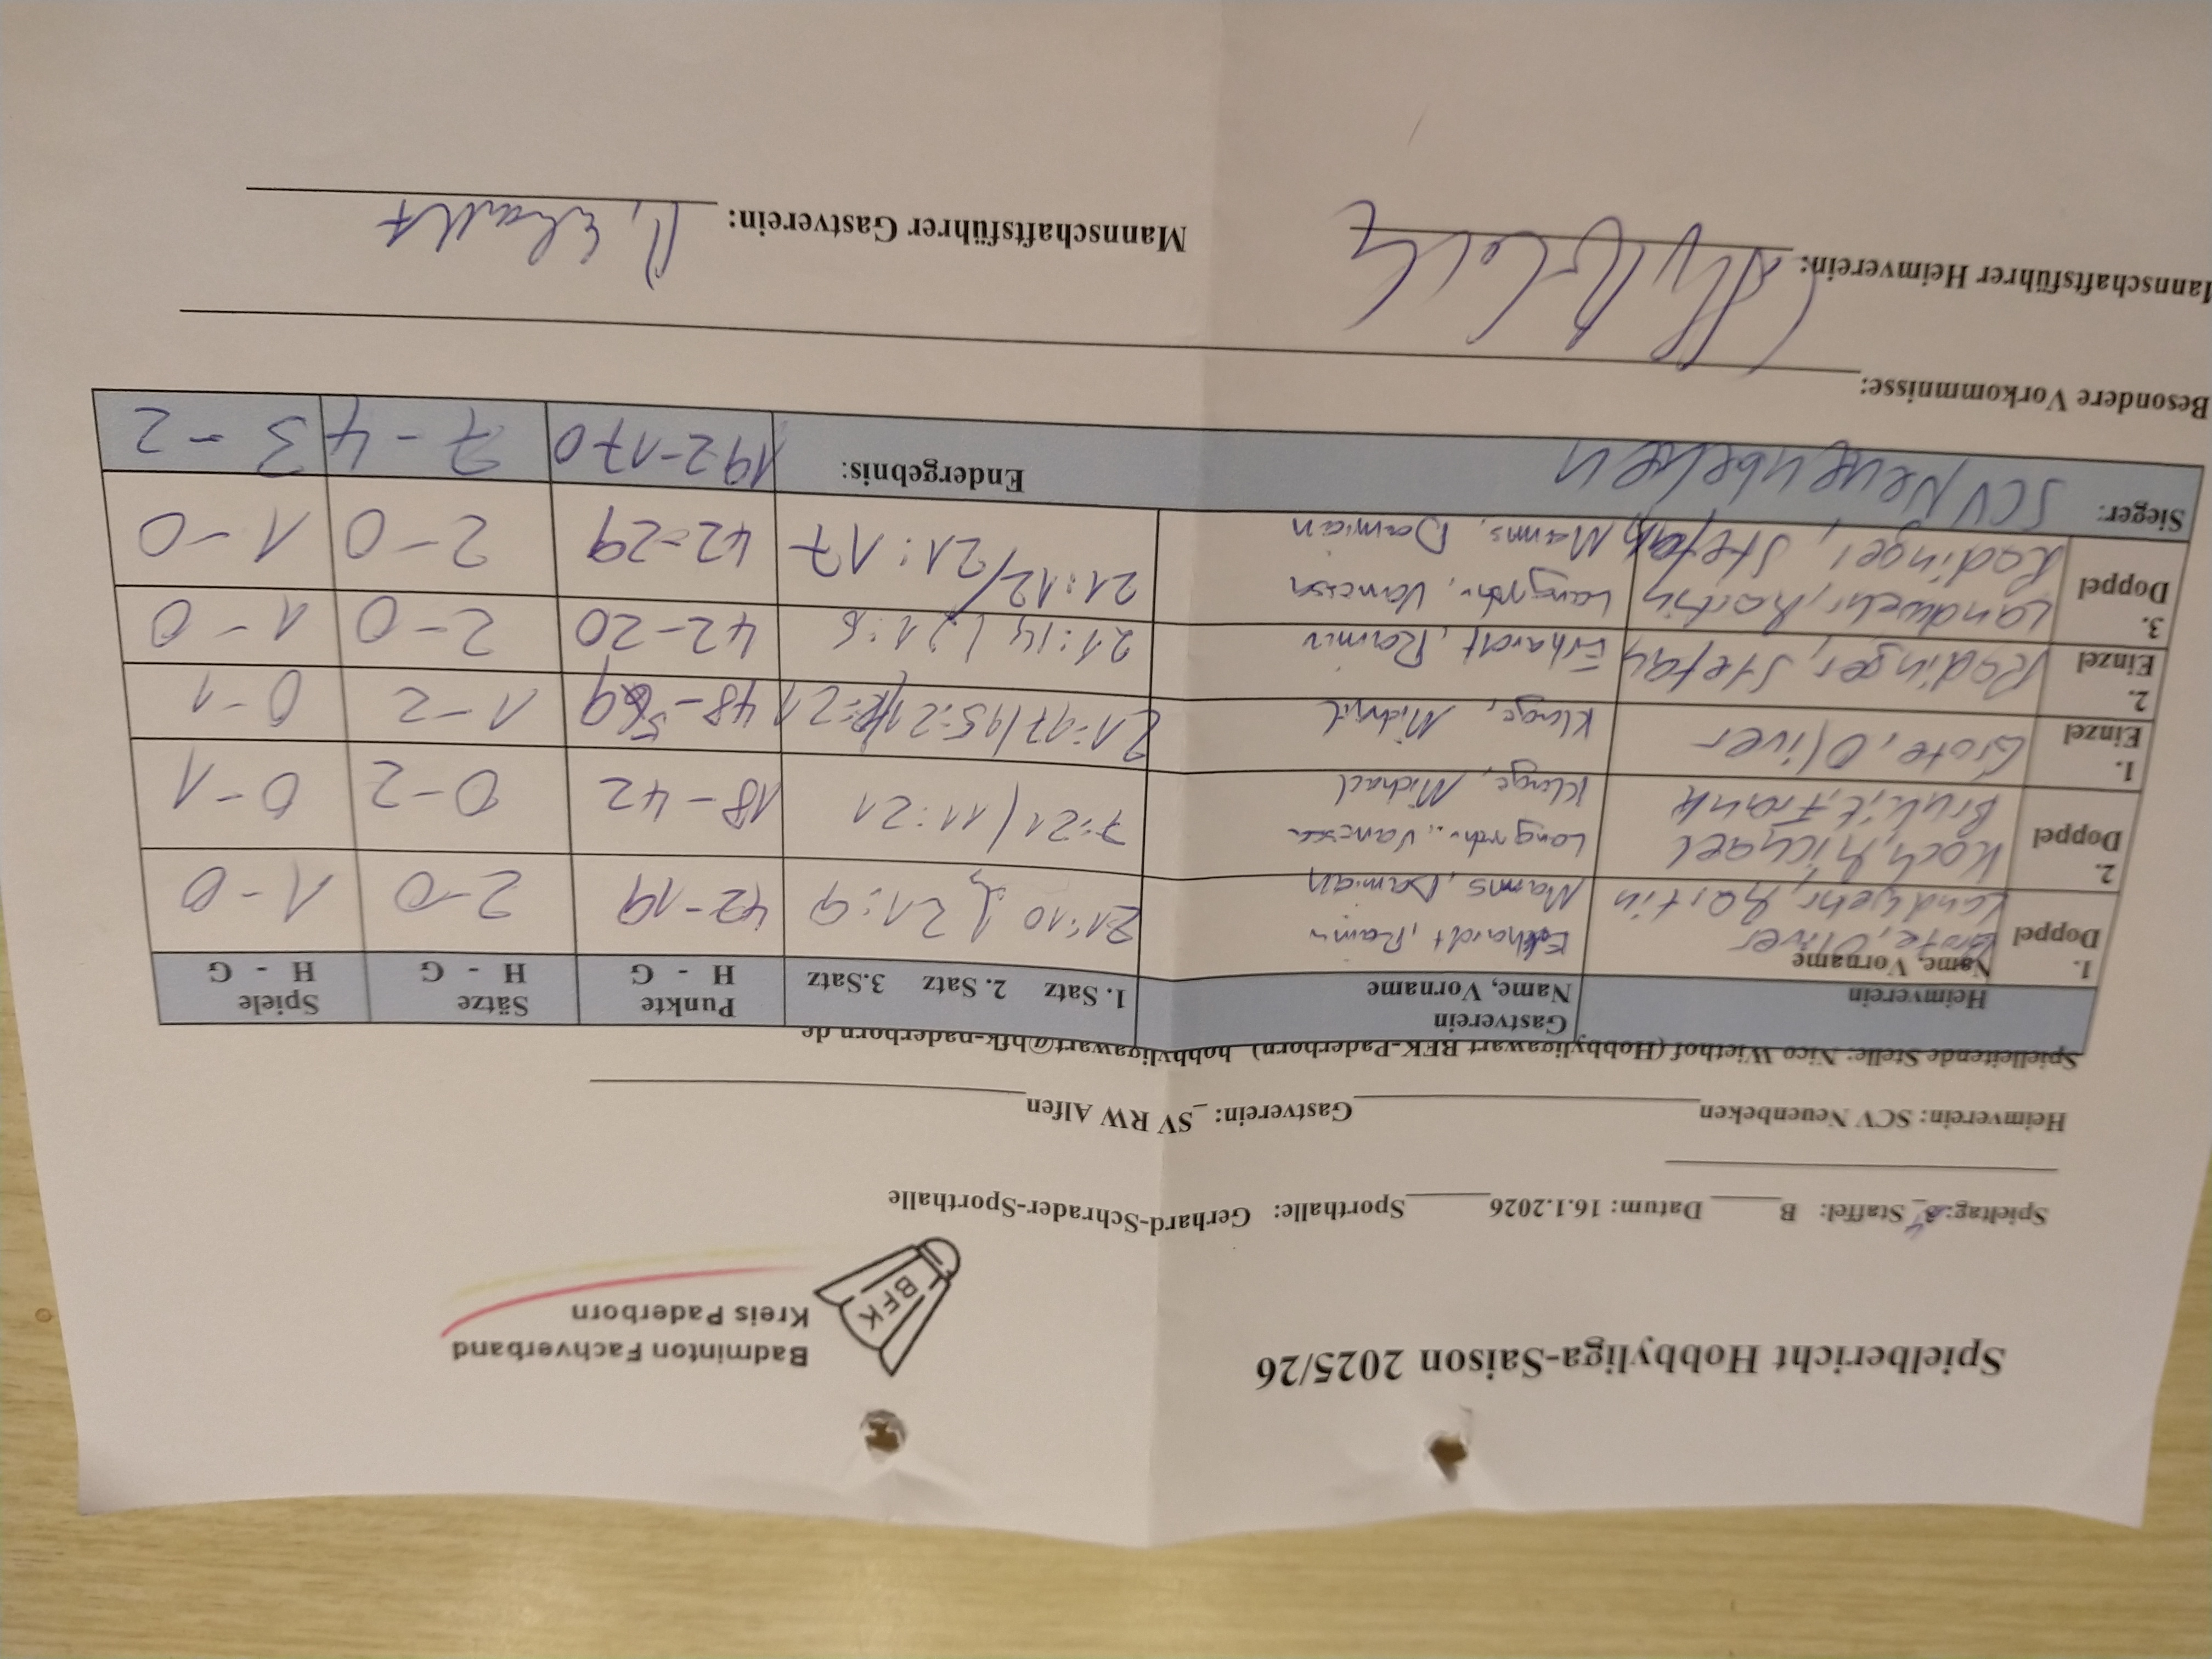 Spielbericht Hobbyliga-Saison 2025/26
Badminton Fachverband
Kreis Paderborn
BFK
Spieltag: 4 Staffel: B Datum: 16.1.2026 Sporthalle: Gerhard-Schrader-Sporthalle
Heimverein: SCV Neuenbeken Gastverein: SV RW Alfen
Spielleitende Stelle: Nico Wiethof (Hobbyligawart BFK-Paderborn) hobbyligawart@bfk-paderborn.de
Heimverein Name, Vorname Gastverein Name, Vorname 1. Satz 2. Satz 3.Satz Punkte H - G Sätze H - G Spiele H - G
1. Doppel Grote, Oliver Erhardt, Ramin 21:10 / 21:9 42-19 2-0 1-0
Landwehr, Martin Manns, Damian
2. Doppel Koch, Michael Vanessa 7:21 / 11:21 18-42 0-2 0-1
Frank Klinge, Michael
1. Einzel Grote, Oliver Klinge, Michael 21:17 / 15:21 / 12:21 48-59 1-2 0-1
2. Einzel Rodinger, Stefan Erhardt, Ramin 21:14 / 21:6 42-20 2-0 1-0
3. Doppel Landwehr, Martin Vanessa 21:12 / 21:17 42-29 2-0 1-0
Rodinger, Stefan Manns, Damian
Sieger: SCV Neuenbeken Endergebnis: 192-170 7-4 3-2
Besondere Vorkommnisse:
Mannschaftsführer Heimverein: Mannschaftsführer Gastverein: R. Erhardt